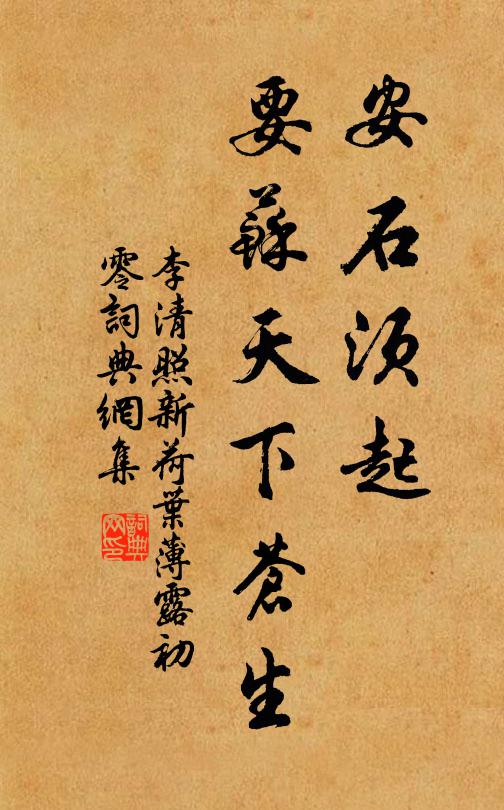 安石須起
要蘇天下蒼生
李清照新荷葉薄露初
零詞典網集
詞典
网印